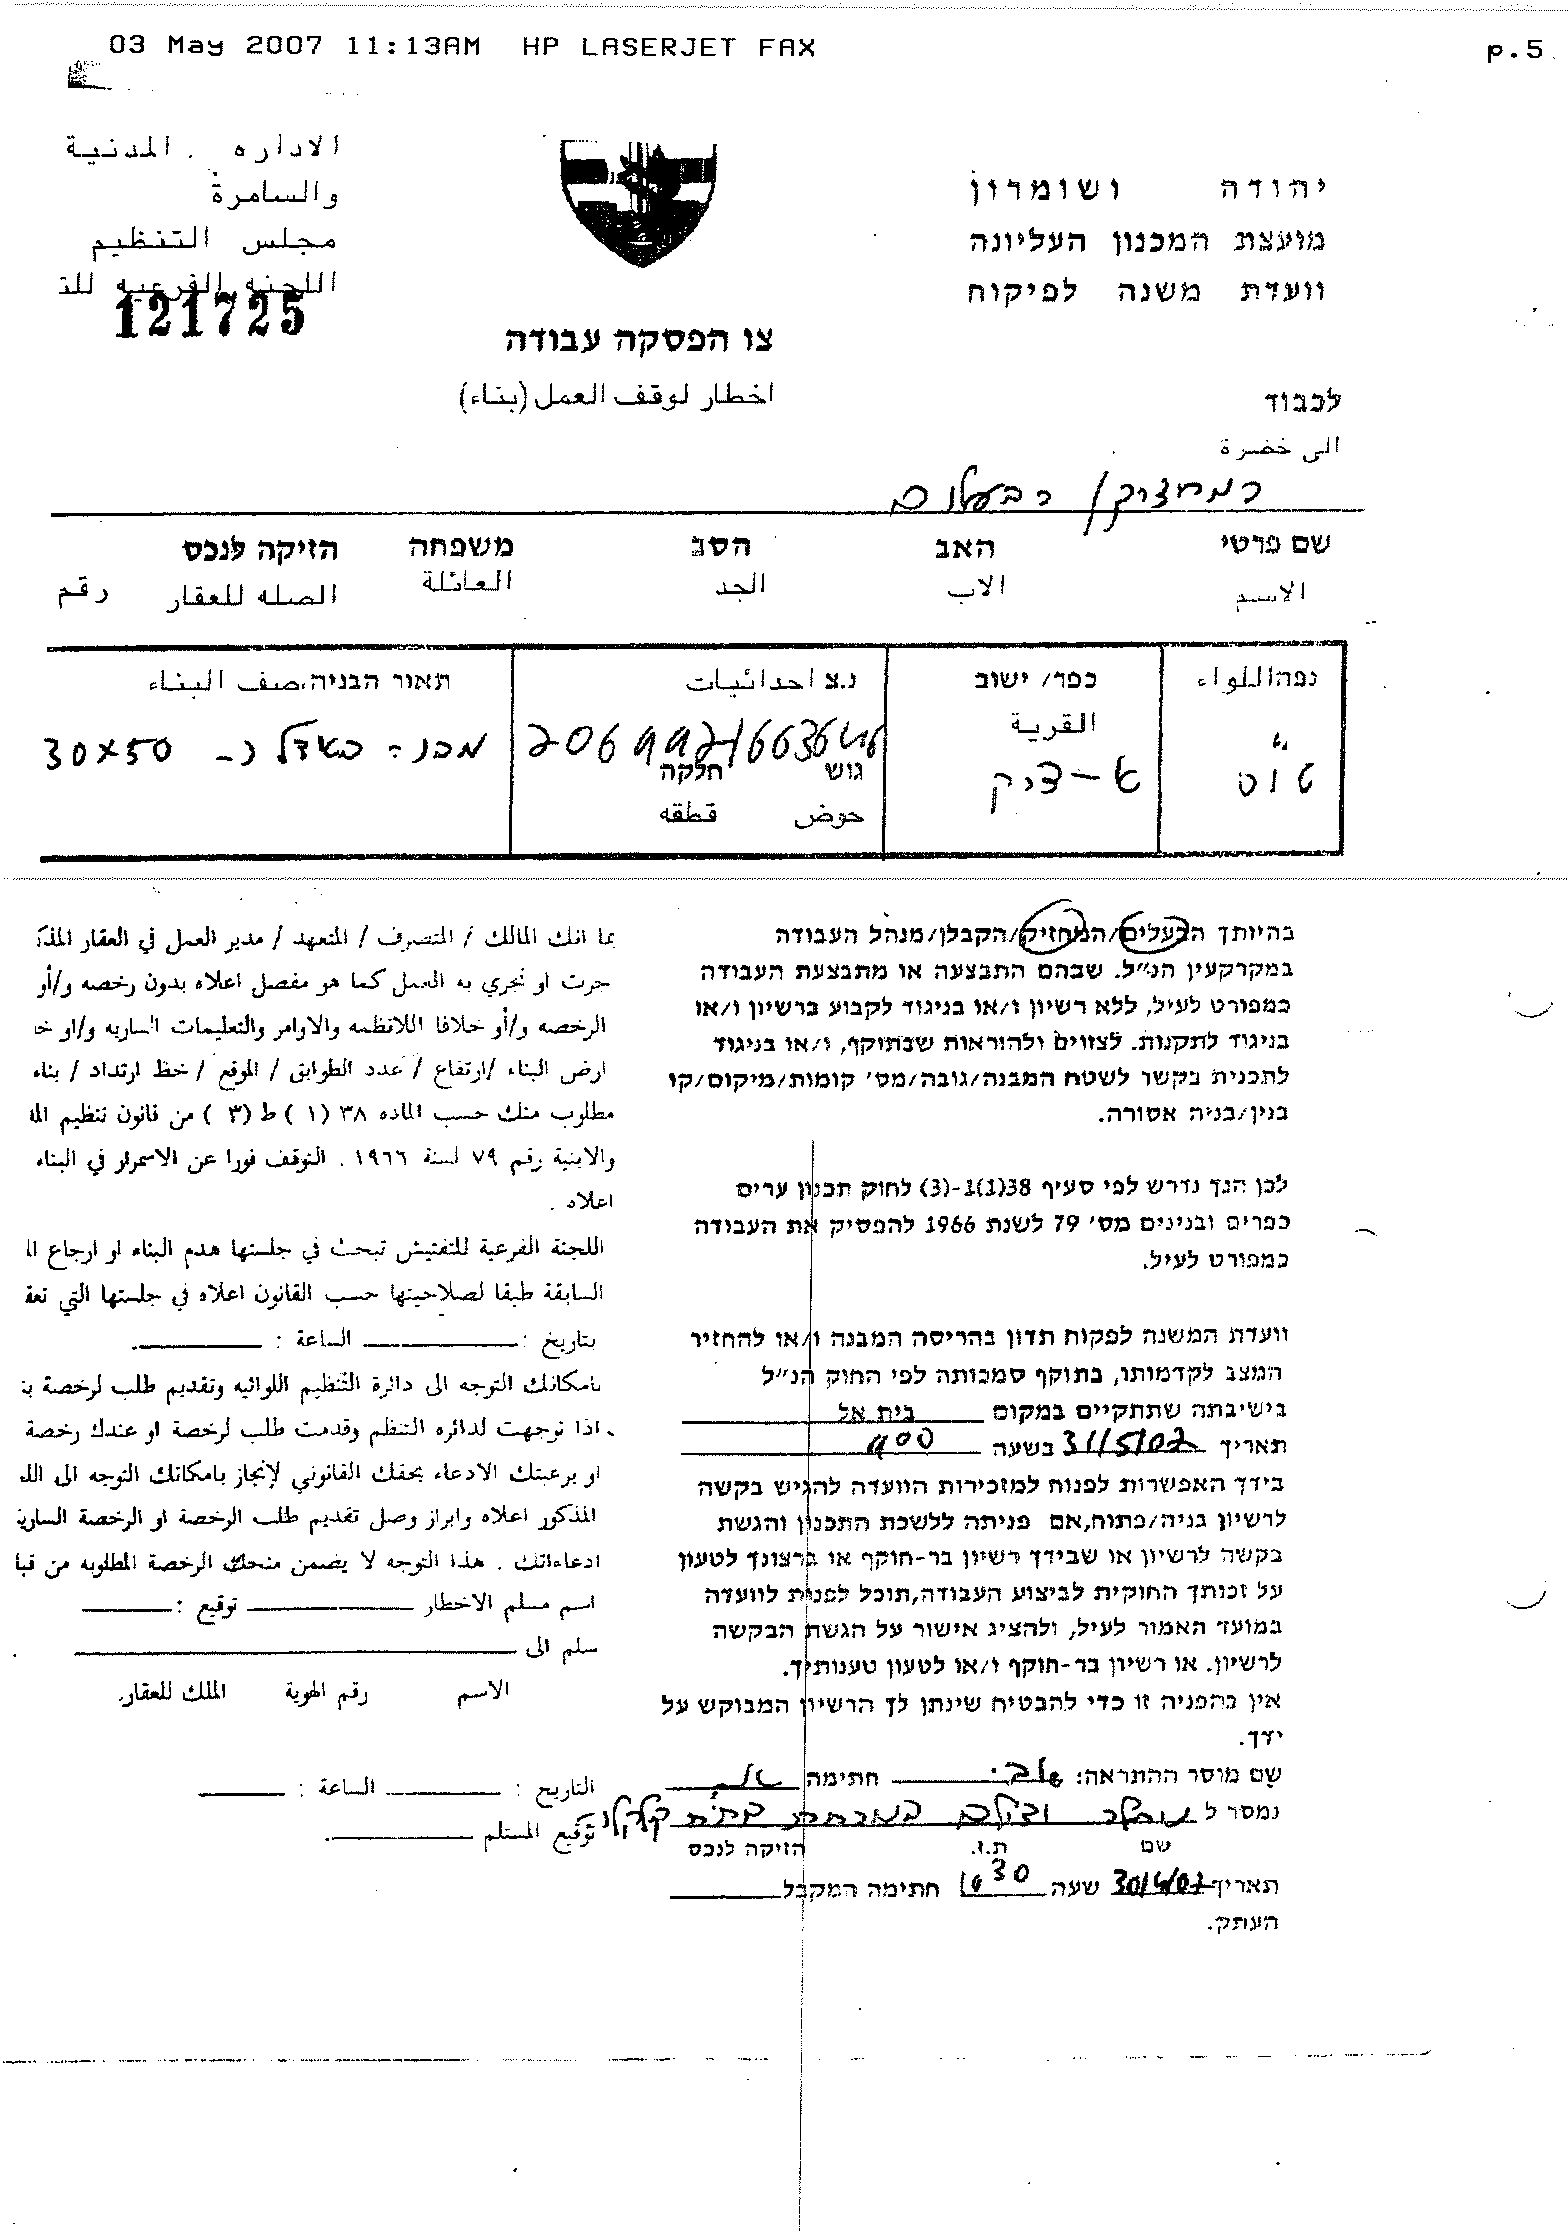 03 May 2007 11:13AM HP LASERJET FAX p.5
יהודה ושומרון
מועצת המכנון העליונה
וועדת משנה לפיקוח
الاداره المدنية
والسامرة
مجلس التنظيم
اللجنه الفرعيه للت
121725
צו הפסקה עבודה
اخطار لوقف العمل (بناء)
לכבוד
الى خضرة
המחזיק / הבעלים
שם פרטי האב הסב משפחה הזיקה לנכס
الاسم الاب الجد العائلة الصله للعقار رقم
נפה اللواء כפר/ ישוב נ.צ احداثيات תאור הבניה، صف البناء
القرية
206992/663646
מבנה בגודל כ- 30x50
א-דיק
גוש חלקה
حوض قطقه
בהיותך הבעלים/המחזיק/הקבלן/מנהל העבודה
במקרקעין הנ״ל. שבהם התבצעה או מתבצעת העבודה
כמפורט לעיל, ללא רשיון ו/או בניגוד לקבוע ברשיון ו/או
בניגוד לתקנות. לצווים ולהוראות שבתוקף, ו/או בניגוד
לתכנית בקשר לשטח המבנה/גובה/מס׳ קומות/מיקום/קו
בנין/בניה אסורה.
לכן הנך נדרש לפי סעיף 38(1)1-(3) לחוק תכנון ערים
כפרים ובנינים מס׳ 79 לשנת 1966 להפסיק את העבודה
כמפורט לעיל.
וועדת המשנה לפקוח תדון בהריסה המבנה ו/או להחזיר
המצב לקדמותו, בתוקף סמכותה לפי החוק הנ״ל
בישיבתה שתתקיים במקום בית אל
תאריך 31/5/07 בשעה 900
בידך האפשרות לפנות למזכירות הוועדה להגיש בקשה
לרשיון בניה/פתוח,אם פניתה ללשכת התכנון והגשת
בקשה לרשיון או שבידך רשיון בר-חוקף או ברצונך לטעון
על זכותך החוקית לביצוע העבודה,תוכל לפנות לוועדה
במועד האמור לעיל, ולהציג אישור על הגשת הבקשה
לרשיון. או רשיון בר-חוקף ו/או לטעון טענותיך.
אין בהפניה זו כדי להבטיח שינתן לך הרשיון המבוקש על
ידך.
שם מוסר ההתראה: חתימה
נמסר ל
שם ת.ז. הזיקה לנכס
תאריך 30/4/07 שעה 1030 חתימה המקבל
העתק.
بما انك المالك / المتصرف / المتعهد / مدير العمل في العقار المذك
جرت او تجري به العمل كما هو مفصل اعلاه بدون رخصه و/أو
الرخصه و/أو خلافا اللانظمه والاوامر والتعليمات الساريه و/او خ
ارض البناء /ارتفاع / عدد الطوابق / الموقع / خظ ارتداد / بناء
مطلوب منك حسب الماده ٣٨ (١) ط (٣) من قانون تنظيم الم
والابنية رقم ٧٩ لسنة ١٩٦٦ . التوقف فورا عن الاسمرار في البناء
اعلاه .
اللجنة الفرعية للتفتيش تبحث في جلستها هدم البناء او ارجاع ال
السابقة طبقا لصلاحيتها حسب القانون اعلاه في جلستها التي تعق
بتاريخ : الساعة :
بامكانك التوجه الى دائرة التنظيم اللوائيه وتقديم طلب لرخصة بن
. اذا توجهت لدائره التنظم وقدمت طلب لرخصة او عندك رخصة
او برغبتك الادعاء بحقك القانوني لإنجاز بامكانك التوجه الى الل
المذكور اعلاه وابراز وصل تقديم طلب الرخصة او الرخصة السارية
ادعاءاتك . هذا التوجه لا يضمن منحك الرخصة المطلوبه من قبا
اسم مسلم الاخطار توقيع :
سلم الى
الاسم رقم الهوية الملك للعقار.
التاريخ : الساعة :
توقيع المستلم